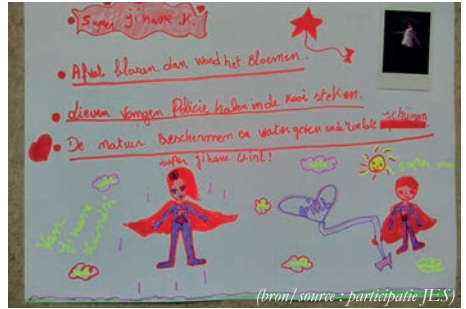 Super jihane K.
Afval blazen dan word het Bloemen.
dieven vangen Policie halen in de kooi steken.
De natuur Beschermen en water geven en de zon late schijnen
super jihane Girl!
super
Van jihane
(bron/ source : participatie JES)